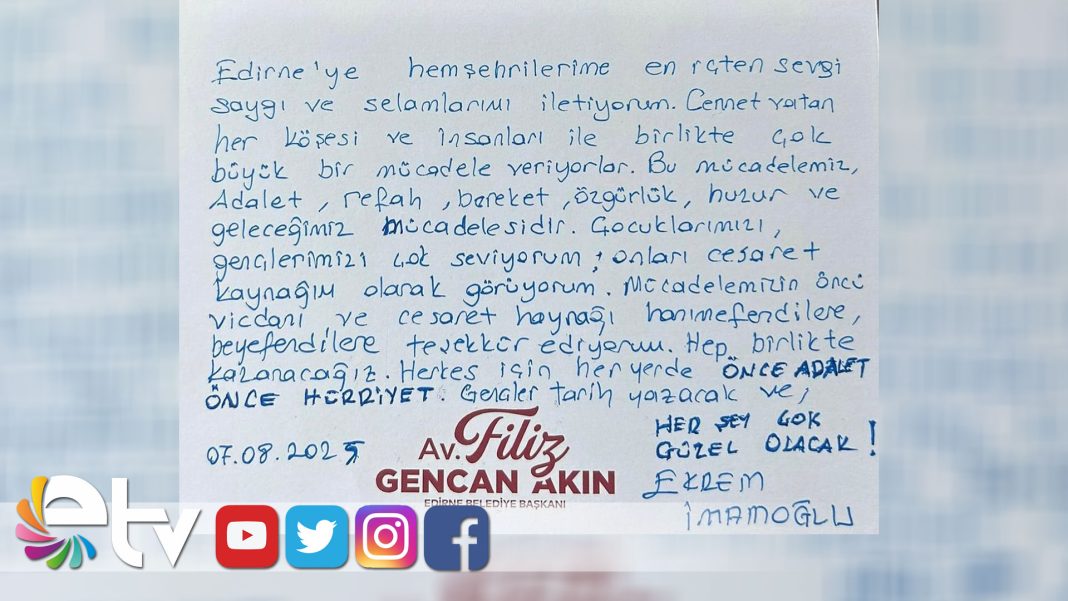 Edirne'ye hemşehrilerime en içten sevgi
saygı ve selamlarımı iletiyorum. Cennet vatan
her köşesi ve insanları ile birlikte çok
büyük bir mücadele veriyorlar. Bu mücadelemiz,
Adalet, refah, bereket, özgürlük, huzur ve
geleceğimiz mücadelesidir. Çocuklarımızı,
gençlerimizi çok seviyorum; onları cesaret
kaynağım olarak görüyorum. Mücadelemizin öncü
vicdanı ve cesaret kaynağı hanımefendilere,
beyefendilere teşekkür ediyorum. Hep birlikte
kazanacağız. Herkes için her yerde ÖNCE ADALET
ÖNCE HÜRRİYET. Gençler tarih yazacak ve,
HER ŞEY ÇOK
GÜZEL OLACAK!
07.08.2025
EKREM
İMAMOĞLU
Av. Filiz
GENCAN AKIN
EDİRNE BELEDİYE BAŞKANI
etv